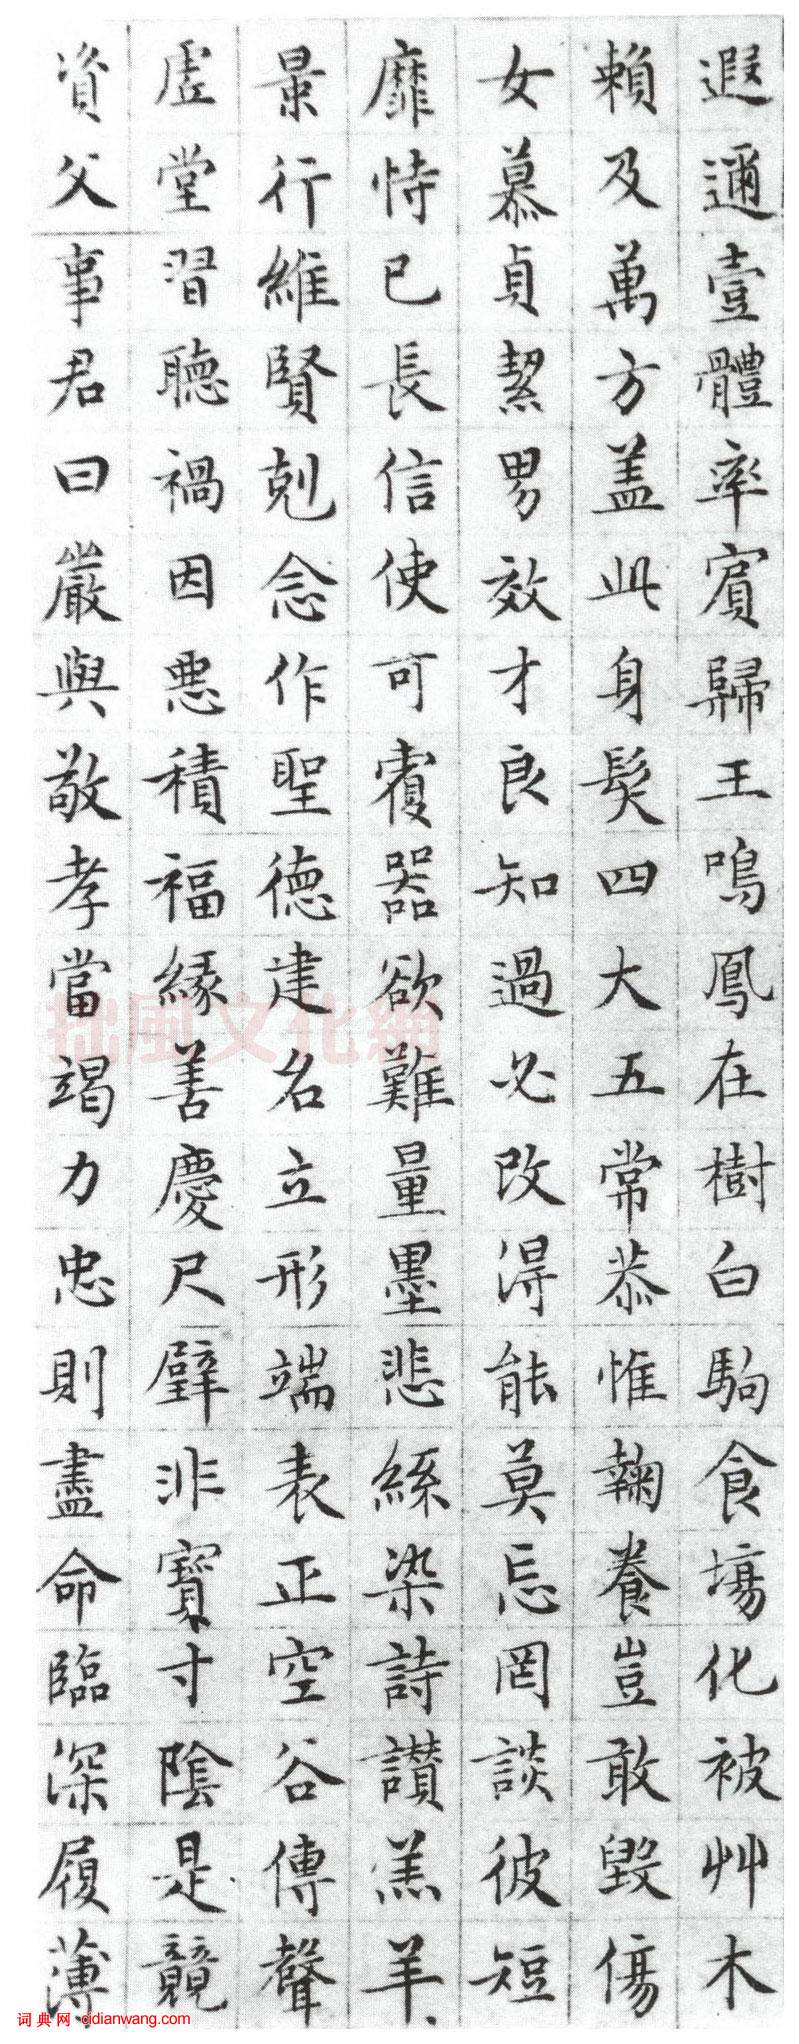 遐邇壹體率賓歸王鳴鳳在樹白駒食場化被艸木
賴及萬方盖此身髮四大五常恭惟鞠養豈敢毀傷
女慕貞絜男效才良知過必改得能莫忘罔談彼短
靡恃已長信使可覆器欲難量墨悲絲染詩讚羔羊
景行維賢剋念作聖德建名立形端表正空谷傳聲
虛堂習聽禍因惡積福緣善慶尺璧非寶寸陰是競
資父事君曰嚴與敬孝當竭力忠則盡命臨深履薄
拙風文化網
词典网 cidianwang.com